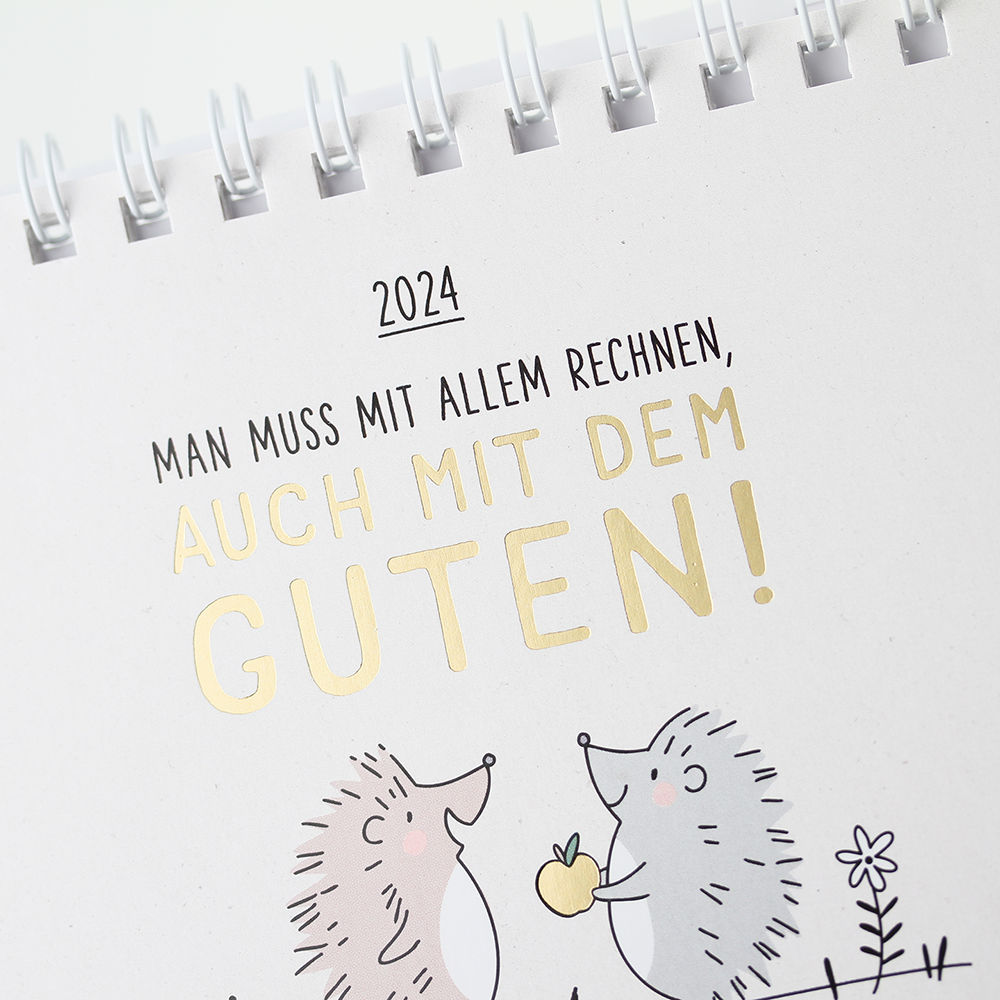 2024
MAN MUSS MIT ALLEM RECHNEN,
AUCH MIT DEM
GUTEN!